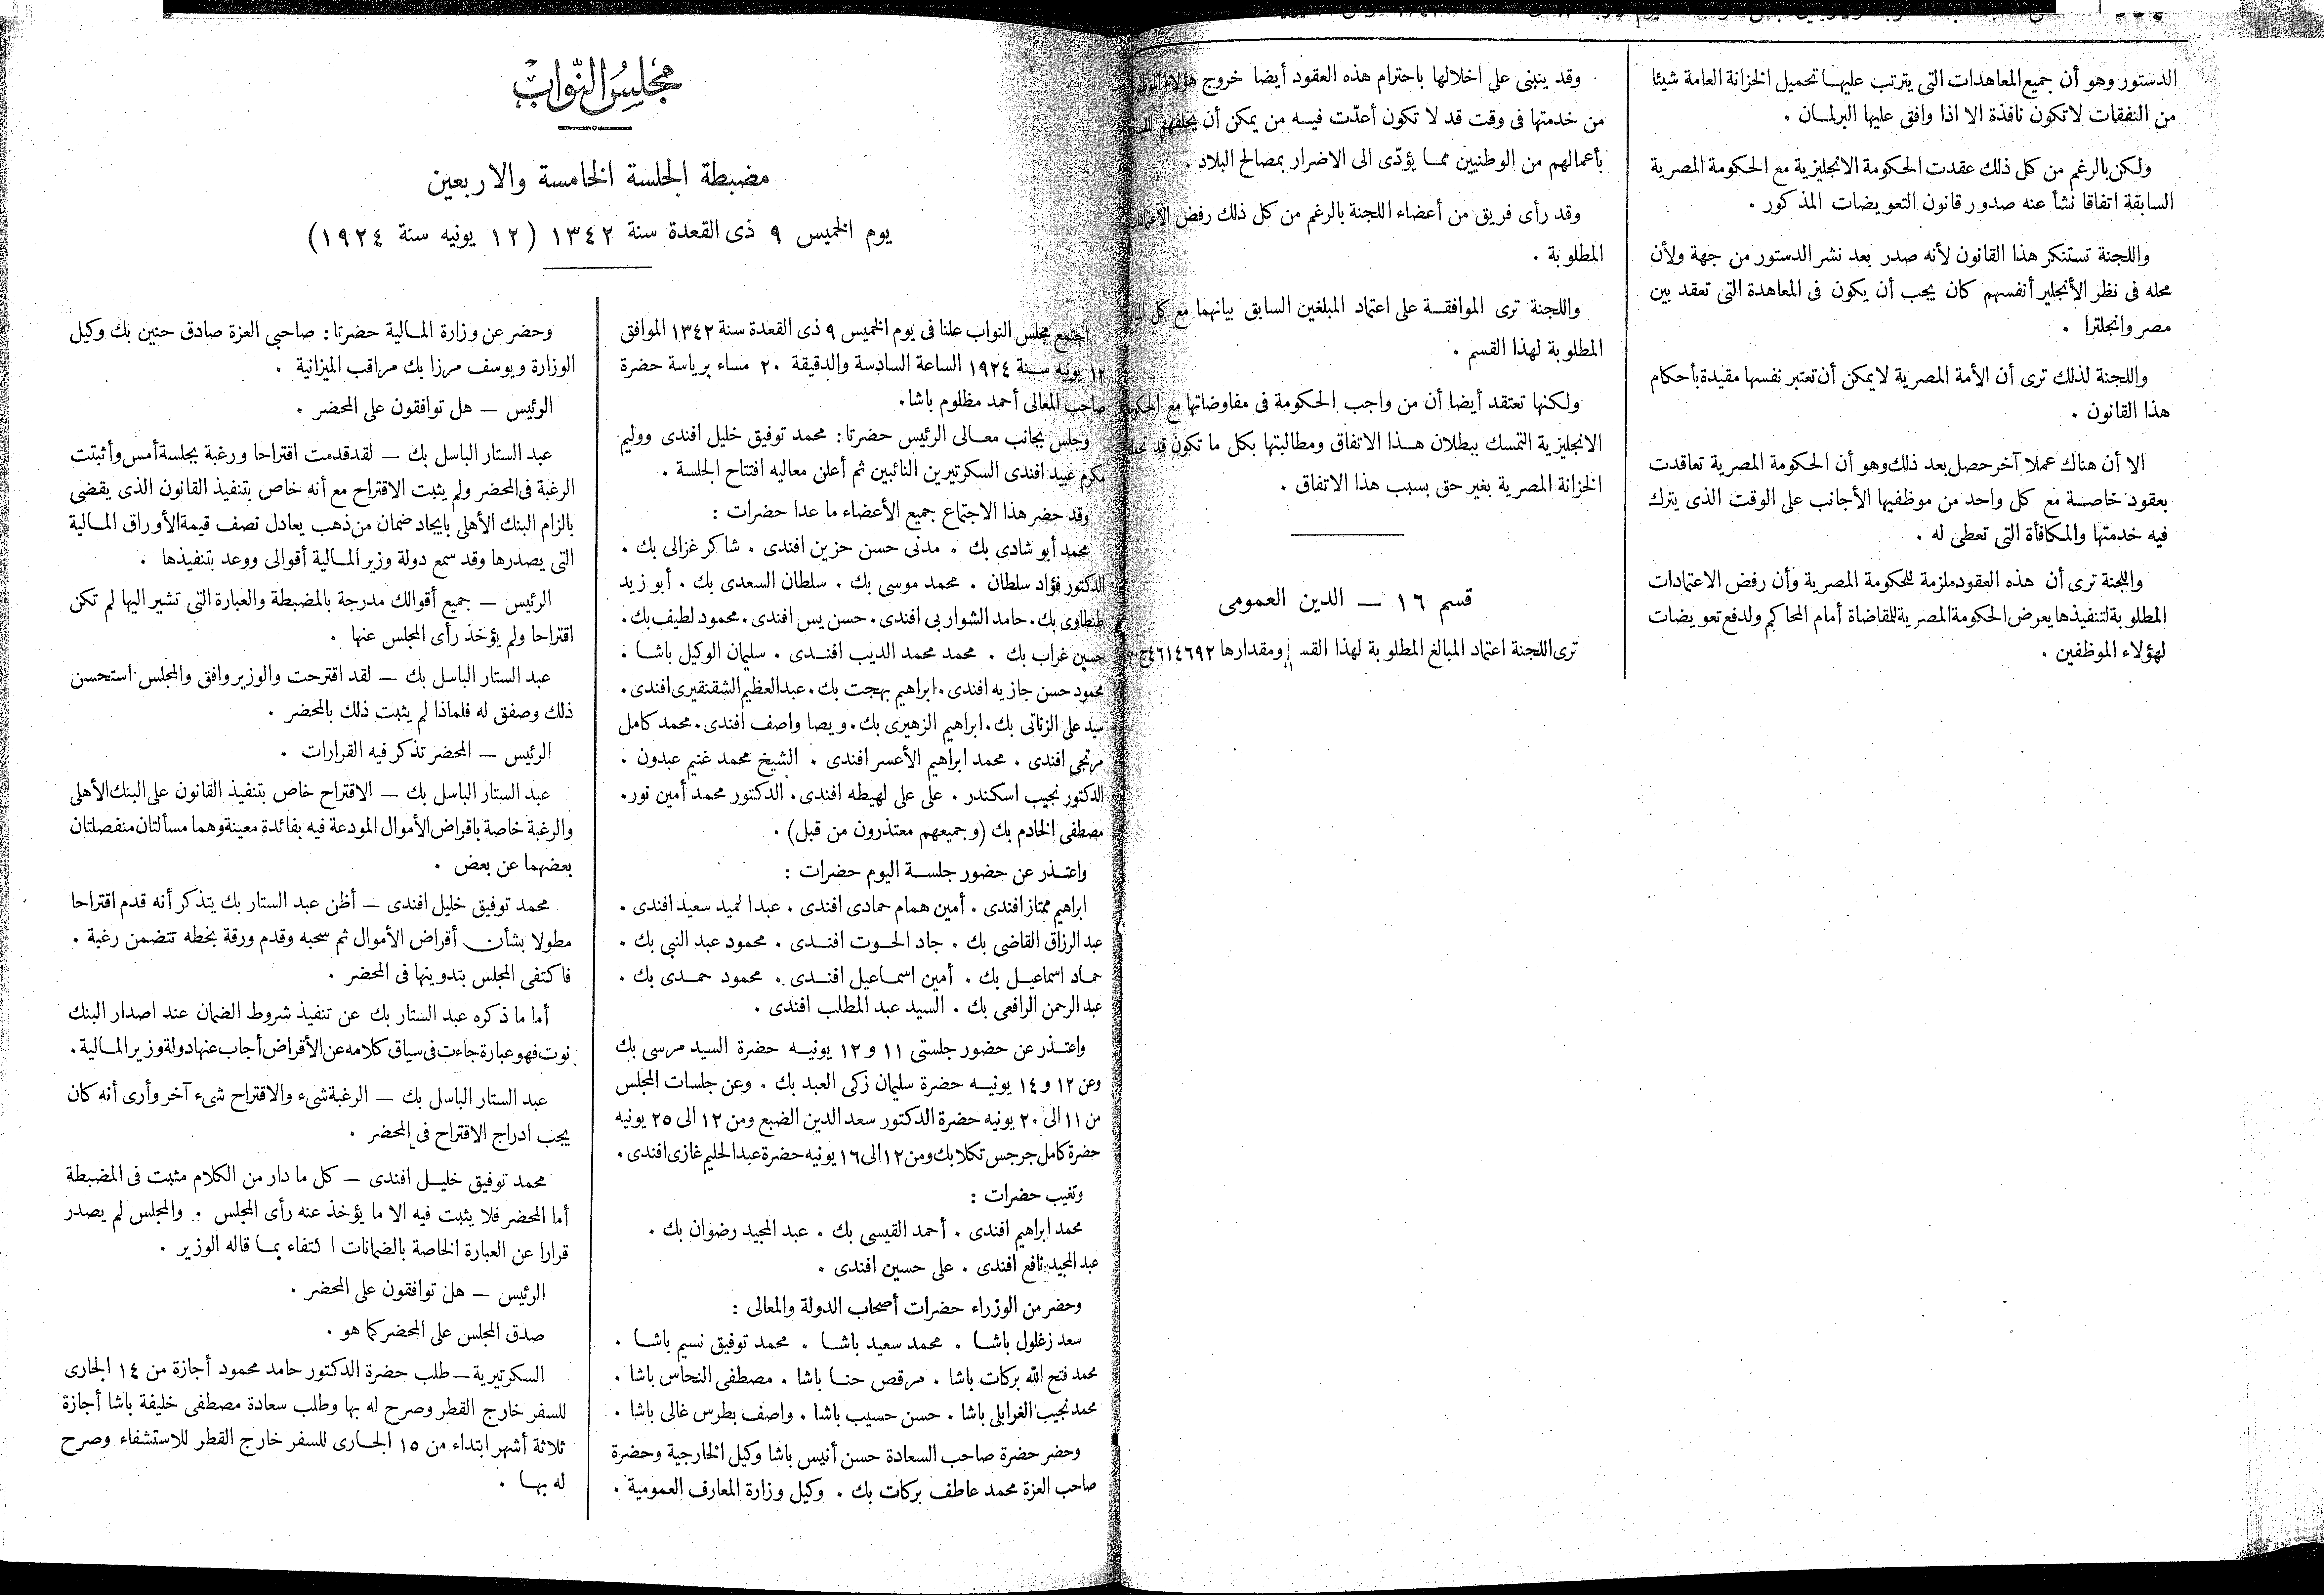 الدستور وهو أن جميع المعاهدات التى يترتب عليها تحميل الخزانة العامة شيئا
من النفقات لا تكون نافذة الا اذا وافق عليها البرلمان .
ولكن بالرغم من كل ذلك عقدت الحكومة الانجليزية مع الحكومة المصرية
السابقة اتفاقا نشأ عنه صدور قانون التعويضات المذكور .
واللجنة تستنكر هذا القانون لأنه صدر بعد نشر الدستور من جهة ولأن
محله فى نظر الأنجليز أنفسهم كان يجب أن يكون فى المعاهدة التى تعقد بين
مصر وانجلترا .
واللجنة لذلك ترى أن الأمة المصرية لا يمكن أن تعتبر نفسها مقيدة بأحكام
هذا القانون .
الا أن هناك عملا آخر حصل بعد ذلك وهو أن الحكومة المصرية تعاقدت
بعقود خاصة مع كل واحد من موظفيها الأجانب على الوقت الذى يترك
فيه خدمتها والمكافأة التى تعطى له .
واللجنة ترى أن هذه العقود ملزمة للحكومة المصرية وأن رفض الاعتمادات
المطلوبة لتنفيذها يعرض الحكومة المصرية للمقاضاة أمام المحاكم ولدفع تعويضات
لهؤلاء الموظفين .
وقد ينبنى على اخلالها باحترام هذه العقود أيضا خروج هؤلاء
من خدمتها فى وقت قد لا تكون أعدّت فيه من يمكن أن يخلفهم
بأعمالهم من الوطنيين مما يؤدّى الى الاضرار بمصالح البلاد .
وقد رأى فريق من أعضاء اللجنة بالرغم من كل ذلك رفض
المطلوبة .
واللجنة ترى الموافقة على اعتماد المبلغين السابق بيانهما مع كل
المطلوبة لهذا القسم .
ولكنها تعتقد أيضا أن من واجب الحكومة فى مفاوضاتها مع
الانجليزية التمسك ببطلان هذا الاتفاق ومطالبتها بكل ما تكون قد
الخزانة المصرية بغير حق بسبب هذا الاتفاق .
قسم ١٦ — الدين العمومى
ترى اللجنة اعتماد المبالغ المطلوبة لهذا القسم ومقدارها ٤٦١٤٦٩٢ ج.م.
مجلسُ النّواب
مضبطة الجلسة الخامسة والاربعين
يوم الخميس ٩ ذى القعدة سنة ١٣٤٢ (١٢ يونيه سنة ١٩٢٤)
اجتمع مجلس النواب علنا فى يوم الخميس ٩ ذى القعدة سنة ١٣٤٢ الموافق
١٢ يونيه سنة ١٩٢٤ الساعة السادسة والدقيقة ٢٠ مساء برياسة حضرة
صاحب المعالى أحمد مظلوم باشا .
وجلس بجانب معالى الرئيس حضرتا : محمد توفيق خليل افندى ووليم
مكرم عبيد افندى السكرتيرين النائبين ثم أعلن معاليه افتتاح الجلسة .
وقد حضر هذا الاجتماع جميع الأعضاء ما عدا حضرات :
محمد أبو شادى بك . مدنى حسن حزين افندى . شاكر غزالى بك .
الدكتور فؤاد سلطان . محمد موسى بك . سلطان السعدى بك . أبو زيد
طنطاوى بك . حامد الشواربى افندى . حسن يس افندى . محمود لطيف بك .
حسين غراب بك . محمد محمد الديب افندى . سليمان الوكيل باشا .
محمود حسن جازيه افندى . ابراهيم بهجت بك . عبد العظيم الشقنقيرى افندى .
سيد على الزناتى بك . ابراهيم الزهيرى بك . ويصا واصف افندى . محمد كامل
مرتجى افندى . محمد ابراهيم الأعسر افندى . الشيخ محمد غنيم عبدون .
الدكتور نجيب اسكندر . على على لهيطه افندى . الدكتور محمد أمين نور .
مصطفى الخادم بك (وجميعهم معتذرون من قبل) .
واعتذر عن حضور جلسة اليوم حضرات :
ابراهيم ممتاز افندى . أمين همام حمادى افندى . عبد الحميد سعيد افندى .
عبد الرزاق القاضى بك . جاد الحوت افندى . محمود عبد النبى بك .
حماد اسماعيل بك . أمين اسماعيل افندى . محمود حمدى بك .
عبد الرحمن الرافعى بك . السيد عبد المطلب افندى .
واعتذر عن حضور جلستى ١١ و ١٢ يونيه حضرة السيد مرسى بك
وعن ١٢ و ١٤ يونيه حضرة سليمان زكى العبد بك . وعن جلسات المجلس
من ١١ الى ٢٠ يونيه حضرة الدكتور سعد الدين الضبع ومن ١٢ الى ٢٥ يونيه
حضرة كامل جرجس تكلا بك ومن ١٢ الى ١٦ يونيه حضرة عبد الحليم غازى افندى .
وتغيب حضرات :
محمد ابراهيم افندى . أحمد القيسى بك . عبد المجيد رضوان بك .
عبد المجيد نافع افندى . على حسين افندى .
وحضر من الوزراء حضرات أصحاب الدولة والمعالى :
سعد زغلول باشا . محمد سعيد باشا . محمد توفيق نسيم باشا .
محمد فتح الله بركات باشا . مرقص حنا باشا . مصطفى النحاس باشا .
محمد نجيب الغرابلى باشا . حسن حسيب باشا . واصف بطرس غالى باشا .
وحضر حضرة صاحب السعادة حسن أنيس باشا وكيل الخارجية وحضرة
صاحب العزة محمد عاطف بركات بك . وكيل وزارة المعارف العمومية .
وحضر عن وزارة المالية حضرتا : صاحبى العزة صادق حنين بك وكيل
الوزارة ويوسف مرزا بك مراقب الميزانية .
الرئيس — هل توافقون على المحضر .
عبد الستار الباسل بك — لقد قدمت اقتراحا ورغبة بجلسة أمس وأثبتت
الرغبة فى المحضر ولم يثبت الاقتراح مع أنه خاص بتنفيذ القانون الذى يقضى
بالزام البنك الأهلى بايجاد ضمان من ذهب يعادل نصف قيمة الأوراق المالية
التى يصدرها وقد سمع دولة وزير المالية أقوالى ووعد بتنفيذها .
الرئيس — جميع أقوالك مدرجة بالمضبطة والعبارة التى تشير اليها لم تكن
اقتراحا ولم يؤخذ رأى المجلس عنها .
عبد الستار الباسل بك — لقد اقترحت والوزير وافق والمجلس استحسن
ذلك وصفق له فلماذا لم يثبت ذلك بالمحضر .
الرئيس — المحضر تذكر فيه القرارات .
عبد الستار الباسل بك — الاقتراح خاص بتنفيذ القانون على البنك الأهلى
والرغبة خاصة باقراض الأموال المودعة فيه بفائدة معينة وهما مسألتان منفصلتان
بعضهما عن بعض .
محمد توفيق خليل افندى — أظن عبد الستار بك يتذكر أنه قدم اقتراحا
مطولا بشأن أقراض الأموال ثم سحبه وقدم ورقة بخطه تتضمن رغبة .
فاكتفى المجلس بتدوينها فى المحضر .
أما ما ذكره عبد الستار بك عن تنفيذ شروط الضمان عند اصدار البنك
نوت فهو عبارة جاءت فى سياق كلامه عن الأقراض أجاب عنها دولة وزير المالية .
عبد الستار الباسل بك — الرغبة شىء والاقتراح شىء آخر وأرى أنه كان
يجب ادراج الاقتراح فى المحضر .
محمد توفيق خليل افندى — كل ما دار من الكلام مثبت فى المضبطة
أما المحضر فلا يثبت فيه الا ما يؤخذ عنه رأى المجلس . والمجلس لم يصدر
قرارا عن العبارة الخاصة بالضمانات اكتفاء بما قاله الوزير .
الرئيس — هل توافقون على المحضر .
صدق المجلس على المحضر كما هو .
السكرتيرية — طلب حضرة الدكتور حامد محمود أجازة من ١٤ الجارى
للسفر خارج القطر وصرح له بها وطلب سعادة مصطفى خليفة باشا أجازة
ثلاثة أشهر ابتداء من ١٥ الجارى للسفر خارج القطر للاستشفاء وصرح
له بها .